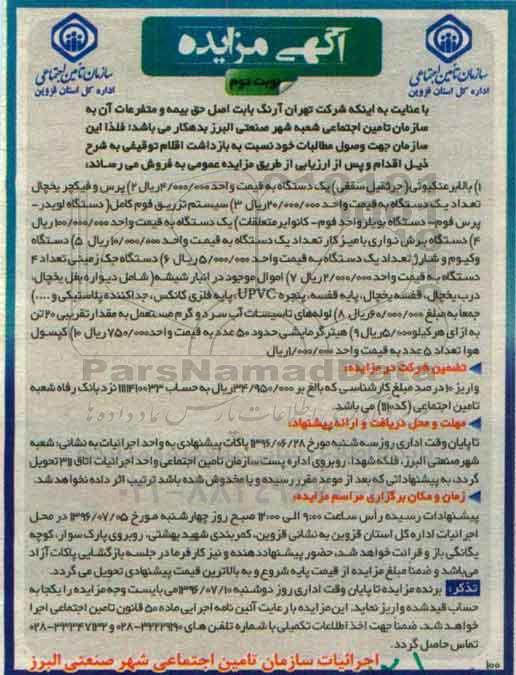 آگهی مزایده
نوبت دوم
سازمان تأمین اجتماعی
اداره کل استان قزوین
سازمان تأمین اجتماعی
اداره کل استان قزوین
با عنایت به اینکه شرکت تهران آرنگ بابت اصل حق بیمه و متفرعات آن به
سازمان تامین اجتماعی شعبه شهر صنعتی البرز بدهکار می باشد؛ فلذا این
سازمان جهت وصول مطالبات خود نسبت به بازداشت اقلام توقیفی به شرح
ذیل اقدام و پس از ارزیابی از طریق مزایده عمومی به فروش می رساند:
۱) بالابر عنکبوتی (جرثقیل سقفی) یک دستگاه به قیمت واحد ۴/۰۰۰/۰۰۰ریال ۲) پرس و فیکچر یخچال
تعداد یک دستگاه به قیمت واحد ۲۰/۰۰۰/۰۰۰ریال ۳) سیستم تزریق فوم کامل( دستگاه لویدر-
پرس فوم- دستگاه بویلر واحد فوم- کانوایر متعلقات) یک دستگاه به قیمت واحد ۱۰۰/۰۰۰/۰۰۰ریال
۴) دستگاه برش نواری با میز کار تعداد یک دستگاه به قیمت واحد ۱۰/۰۰۰/۰۰۰ریال ۵) دستگاه
وکیوم و شارژ تعداد یک دستگاه به قیمت واحد ۵/۰۰۰/۰۰۰ریال ۶) دستگاه جک زمینی تعداد ۴
دستگاه به قیمت واحد ۲/۰۰۰/۰۰۰ریال ۷) اموال موجود در انبار شیشه( شامل دیواره بغل یخچال،
درب یخچال، قفسه یخچال، پایه قفسه، پنجره UPVC، پایه فلزی کانکس، جداکننده پلاستیکی و ....)
جمعا به مبلغ ۶۰/۰۰۰/۰۰۰ریال ۸) لوله های تاسیسات آب سرد و گرم مستعمل به مقدار تقریبی ۲۰تن
به ازای هر کیلو ۵/۰۰۰ریال ۹) هیتر گرمایشی حدود ۵۰ عدد به قیمت واحد ۷۵۰/۰۰۰ریال ۱۰) کپسول
هوا تعداد ۵ عدد به قیمت واحد ۱/۰۰۰/۰۰۰ریال
تضمین شرکت در مزایده:
واریز ۱۰ درصد مبلغ کارشناسی که بالغ بر ۳۴/۹۵۰/۰۰۰ریال به حساب ۱۱۱۱۴۱۰۰۳۳ نزد بانک رفاه شعبه
تامین اجتماعی (کد۱۱۱۰) می باشد.
مهلت و محل دریافت و ارائه پیشنهاد:
تا پایان وقت اداری روز سه شنبه مورخ ۱۳۹۶/۰۶/۲۸ پاکات پیشنهادی به واحد اجرائیات به نشانی: شعبه
شهر صنعتی البرز، فلکه شهدا، روبروی اداره پست سازمان تامین اجتماعی واحد اجرائیات اتاق ۳۱۱ تحویل
گردد، به پیشنهاداتی که بعد از موعد مقرر رسیده و یا مخدوش شده باشد ترتیب اثر داده نخواهد شد.
زمان و مکان برگزاری مراسم مزایده:
پیشنهادات رسیده راس ساعت ۹:۰۰ الی ۱۲:۰۰ صبح روز چهارشنبه مورخ ۱۳۹۶/۰۷/۰۵ در محل
اجرائیات اداره کل استان قزوین به نشانی قزوین، کمربندی شهید بهشتی، روبروی پارک سوار، کوچه
یگانگی باز و قرائت خواهد شد، حضور پیشنهاددهنده و نیز کارفرما در جلسه بازگشایی پاکات آزاد
می باشد و ضمنا مبلغ مزایده از قیمت پایه شروع و به بالاترین قیمت پیشنهادی تحویل می گردد.
تذکر: برنده مزایده تا پایان وقت اداری روز دوشنبه ۱۳۹۶/۰۷/۱۰ می بایست وجه مزایده را یکجا به
حساب قیدشده واریز نماید. این مزایده با رعایت آئین نامه اجرایی ماده ۵۰ قانون تامین اجتماعی اجرا
خواهد شد. ضمنا جهت اخذ اطلاعات تکمیلی با شماره تلفن های
تماس حاصل گردد.
اجرائیات سازمان تامین اجتماعی شهر صنعتی البرز
ParsNamadData